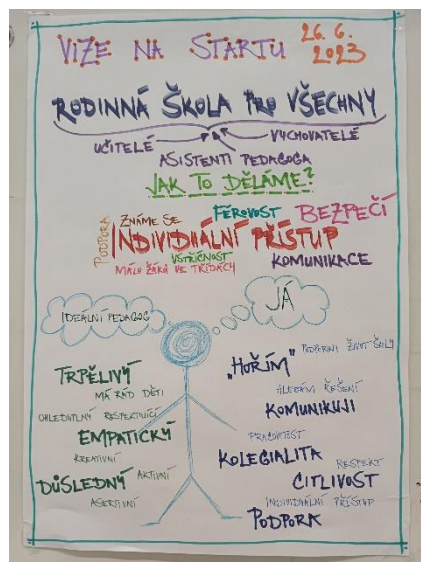 VIZE NA STARTU 26. 6. 2023
RODINNÁ ŠKOLA PRO VŠECHNY
UČITELÉ VYCHOVATELÉ
ASISTENTI PEDAGOGA
JAK TO DĚLÁME?
PODPORA
ZNÁME SE FÉROVOST BEZPEČÍ
INDIVIDUÁLNÍ PŘÍSTUP
VSTŘÍCNOST
MÁLO ŽÁKŮ VE TŘÍDÁCH KOMUNIKACE
IDEÁLNÍ PEDAGOG
JÁ
TRPĚLIVÝ
MÁ RÁD DĚTI
OHLEDUPLNÝ RESPEKTUJÍCÍ
EMPATICKÝ
KREATIVNÍ
DŮSLEDNÝ AKTIVNÍ
ASERTIVNÍ
„HOŘÍM" ŽIVOT ŠKOLY
HLEDÁM ŘEŠENÍ
KOMUNIKUJI
PRACOVITOST
KOLEGIALITA
RESPEKT
CITLIVOST
INDIVIDUÁLNÍ PŘÍSTUP
PODPORA